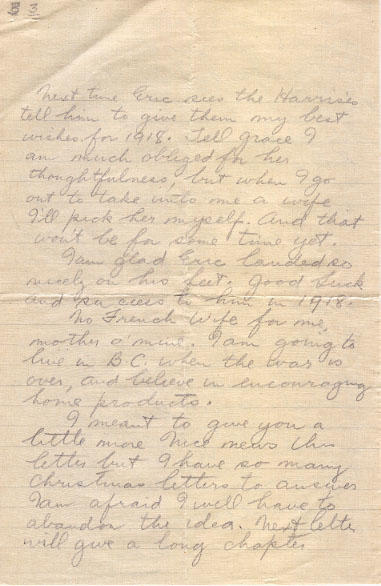 3
Next time Eric sees the Harrises
tell him to give them my best
wishes for 1918. Tell Grace I
am much obliged for her
thoughtfulness, but when I go
out to take unto me a wife
I'll pick her myself. And that
won't be for some time yet.
I am glad Eric landed so
nicely on his feet, Good luck
and success to him in 1918.
No French Wife for me,
mother o' mine. I am going to
live in B.C. when the war is
over, and believe in encouraging
home products.
I meant to give you a
little more Nice news this
letter but I have so many
Christmas letters to answer
I am afraid I will have to
abandon the idea. Next letter
will give a long chapter